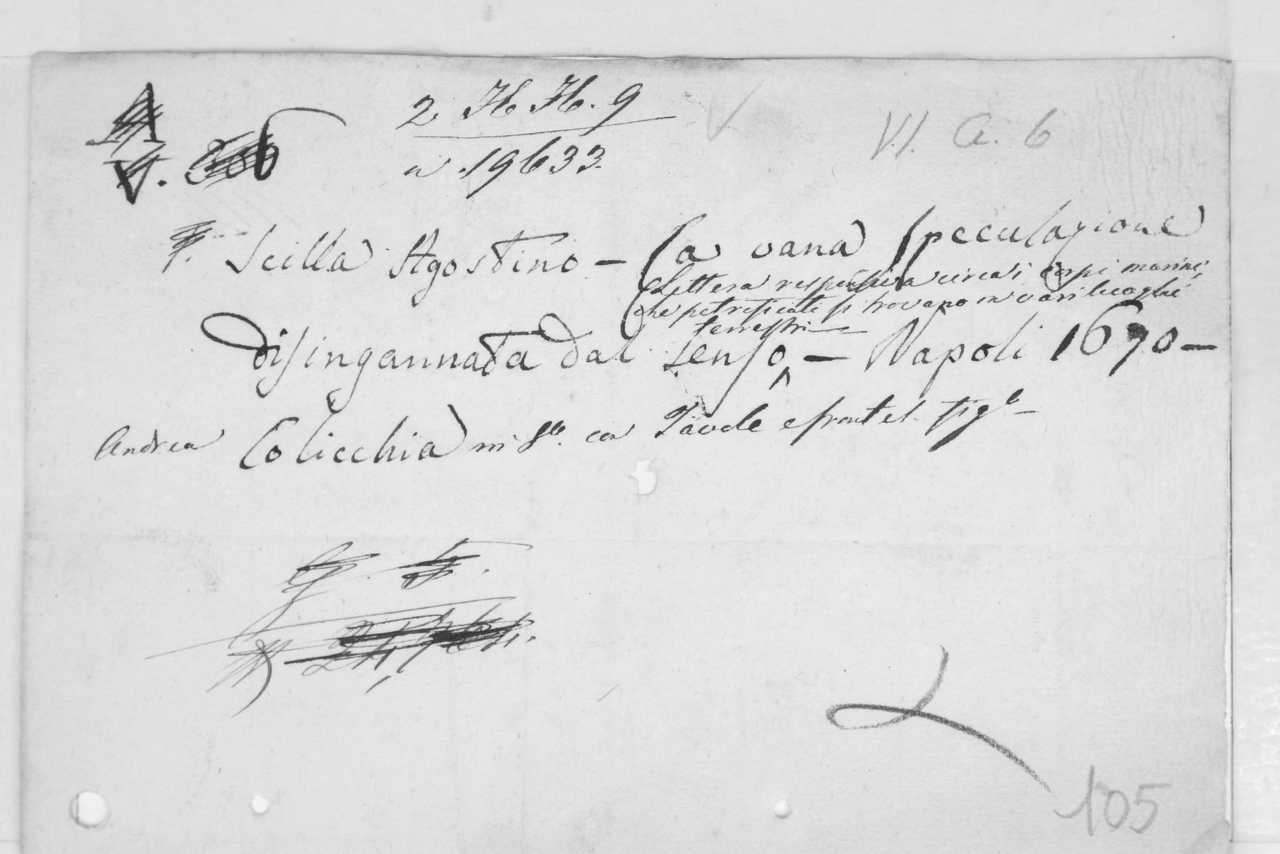 2 H. H. 9
n 19633.
VI. a. 6
Scilla Agostino – La vana Speculazione
Lettera responsiva circa i Corpi marini,
che petrificati si trovano in varii luoghi
terrestri
disingannata dal senso – Napoli 1670 –
Andrea Colicchia in 8º. con Tavole e frontesp. figº
105